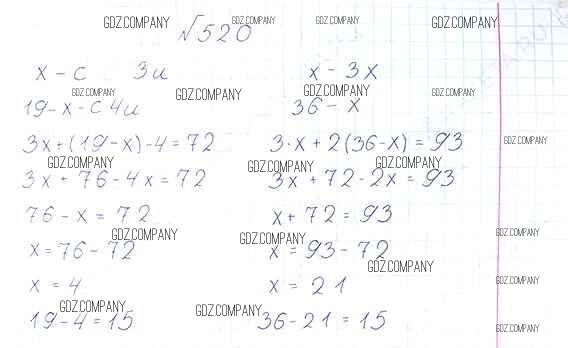 GDZ.COMPANY GDZ.COMPANY GDZ.COMPANY GDZ.COMPANY
№520
x - с 3 и
19 - x - с 4 и
3x + (19 - x) · 4 = 72
3x + 76 - 4x = 72
76 - x = 72
x = 76 - 72
x = 4
19 - 4 = 15
x - 3x
36 - x
3 · x + 2(36 - x) = 93
3x + 72 - 2x = 93
x + 72 = 93
x = 93 - 72
x = 21
36 - 21 = 15
GDZ.COMPANY GDZ.COMPANY GDZ.COMPANY GDZ.COMPANY
GDZ.COMPANY
GDZ.COMPANY GDZ.COMPANY GDZ.COMPANY
GDZ.COMPANY GDZ.COMPANY GDZ.COMPANY
GDZ.COMPANY
GDZ.COMPANY
GDZ.COMPANY
GDZ.COMPANY